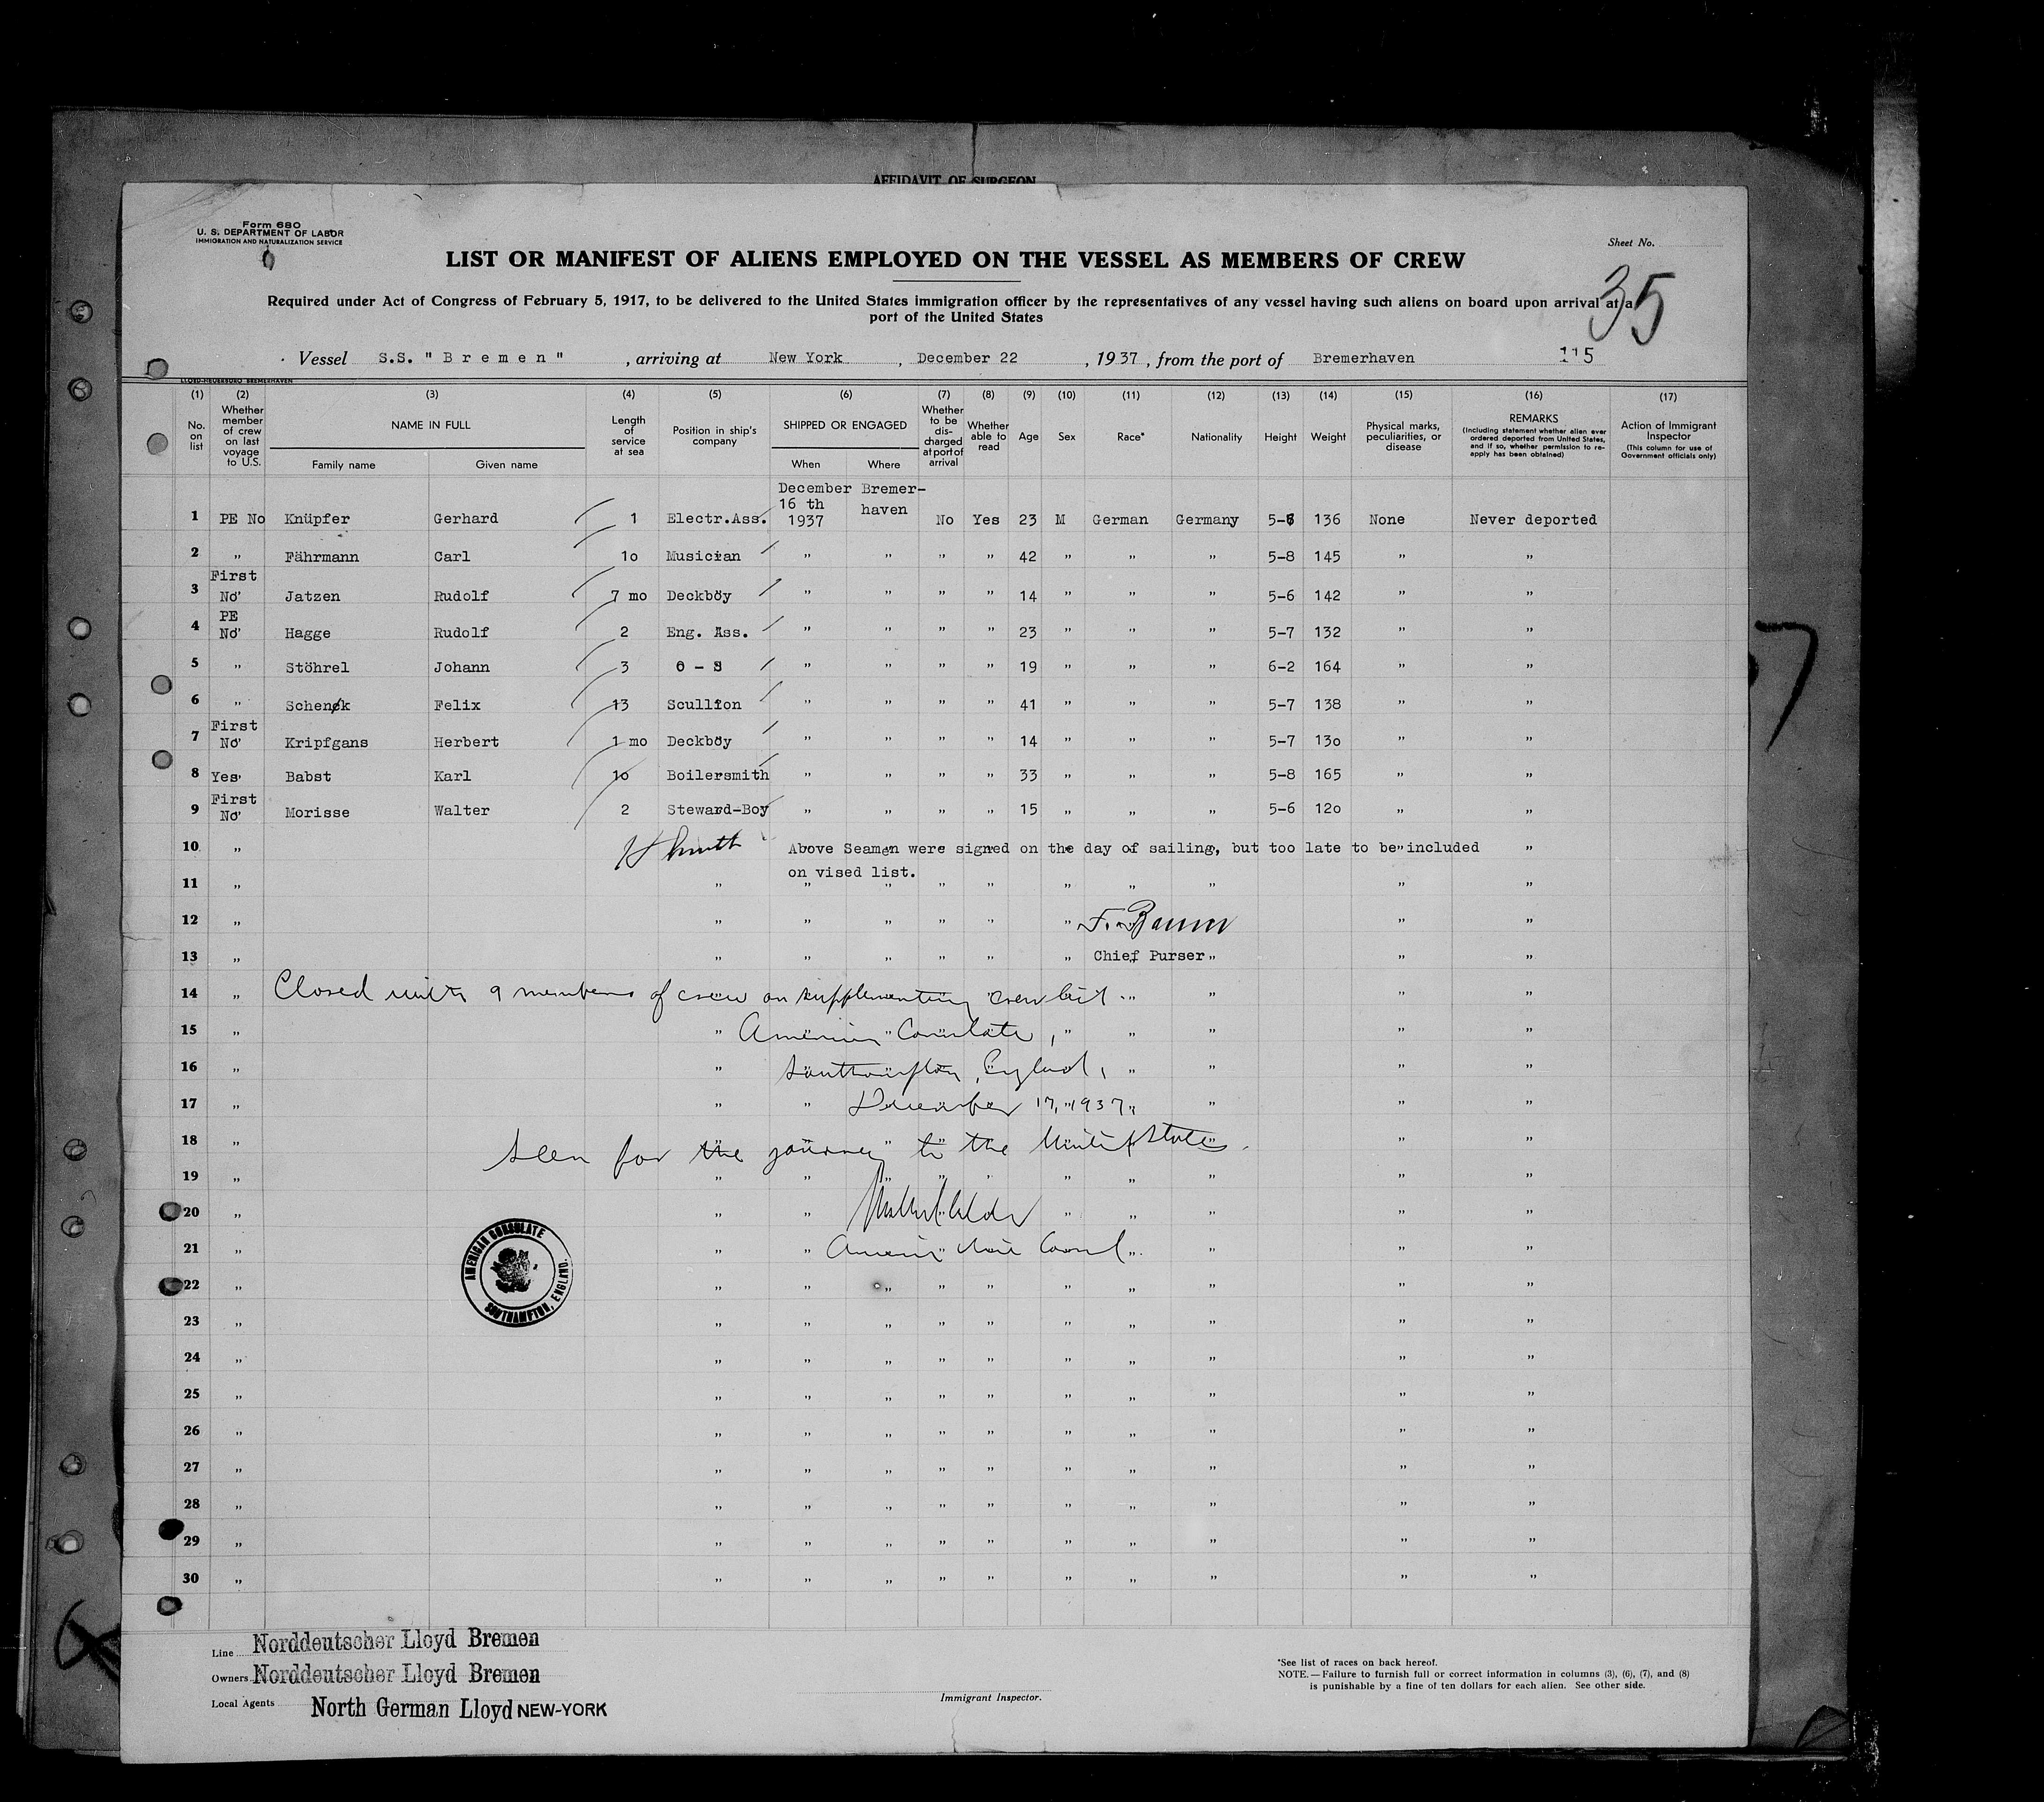 AFFIDAVIT OF SURGEON
Form 680
U. S. DEPARTMENT OF LABOR
IMMIGRATION AND NATURALIZATION SERVICE
Sheet No.
35
LIST OR MANIFEST OF ALIENS EMPLOYED ON THE VESSEL AS MEMBERS OF CREW
Required under Act of Congress of February 5, 1917, to be delivered to the United States immigration officer by the representatives of any vessel having such aliens on board upon arrival at a
port of the United States
Vessel S.S. "Bremen", arriving at New York, December 22, 1937, from the port of Bremerhaven 115
LLOYD-HEUERBÜRO BREMERHAVEN
(1) (2) (3) (4) (5) (6) (7) (8) (9) (10) (11) (12) (13) (14) (15) (16) (17)
No. on list
Whether member of crew on last voyage to U.S.
NAME IN FULL
Family name Given name
Length of service at sea
Position in ship's company
SHIPPED OR ENGAGED
When Where
Whether to be discharged at port of arrival
Whether able to read
Age
Sex
Race*
Nationality
Height
Weight
Physical marks, peculiarities, or disease
REMARKS
(Including statement whether alien ever ordered deported from United States, and if so, whether permission to re-apply has been obtained)
Action of Immigrant Inspector
(This column for use of Government officials only)
December 16 th 1937 Bremerhaven
1 PE No Knüpfer Gerhard 1 Electr.Ass. No Yes 23 M German Germany 136 None Never deported
2 " Fährmann Carl 1o Musician " " " " 42 " " " 5-8 145 " "
3 First No Jatzen Rudolf 7 mo Deckboy " " " " 14 " " " 5-6 142 " "
4 PE No Hagge Rudolf 2 Eng. Ass. " " " " 23 " " " 5-7 132 " "
5 " Stöhrel Johann 3 O - S " " " " 19 " " " 6-2 164 " "
6 " Schenk Felix 13 Scullion " " " " 41 " " " 5-7 138 " "
7 First No Kripfgans Herbert 1 mo Deckboy " " " " 14 " " " 5-7 13o " "
8 Yes Babst Karl 1o Boilersmith " " " " 33 " " " 5-8 165 " "
9 First No Morisse Walter 2 Steward-Boy " " " " 15 " " " 5-6 12o " "
10 " Above Seamen were signed on the day of sailing, but too late to be included "
11 " on vised list.
12 " F. Baum
13 " Chief Purser
14 " Closed with 9 members of crew on supplementing crew list.
15 " American Consulate,
16 " Southampton, England,
17 " December 17, 1937.
18 " Seen for the journey to the United States.
19 "
20 "
21 " American Vice Consul.
AMERICAN CONSULATE
SOUTHAMPTON, ENGLAND.
22 " " " " " " " " " "
23 " " " " " " " " " " "
24 " " " " " " " " " " "
25 " " " " " " " " " " "
26 " " " " " " " " " " "
27 " " " " " " " " " " "
28 " " " " " " " " " " "
29 " " " " " " " " " " "
30 " " " " " " " " " " "
Line Norddeutscher Lloyd Bremen
Owners Norddeutscher Lloyd Bremen
Local Agents North German Lloyd NEW-YORK
Immigrant Inspector.
*See list of races on back hereof.
NOTE.—Failure to furnish full or correct information in columns (3), (6), (7), and (8)
is punishable by a fine of ten dollars for each alien. See other side.